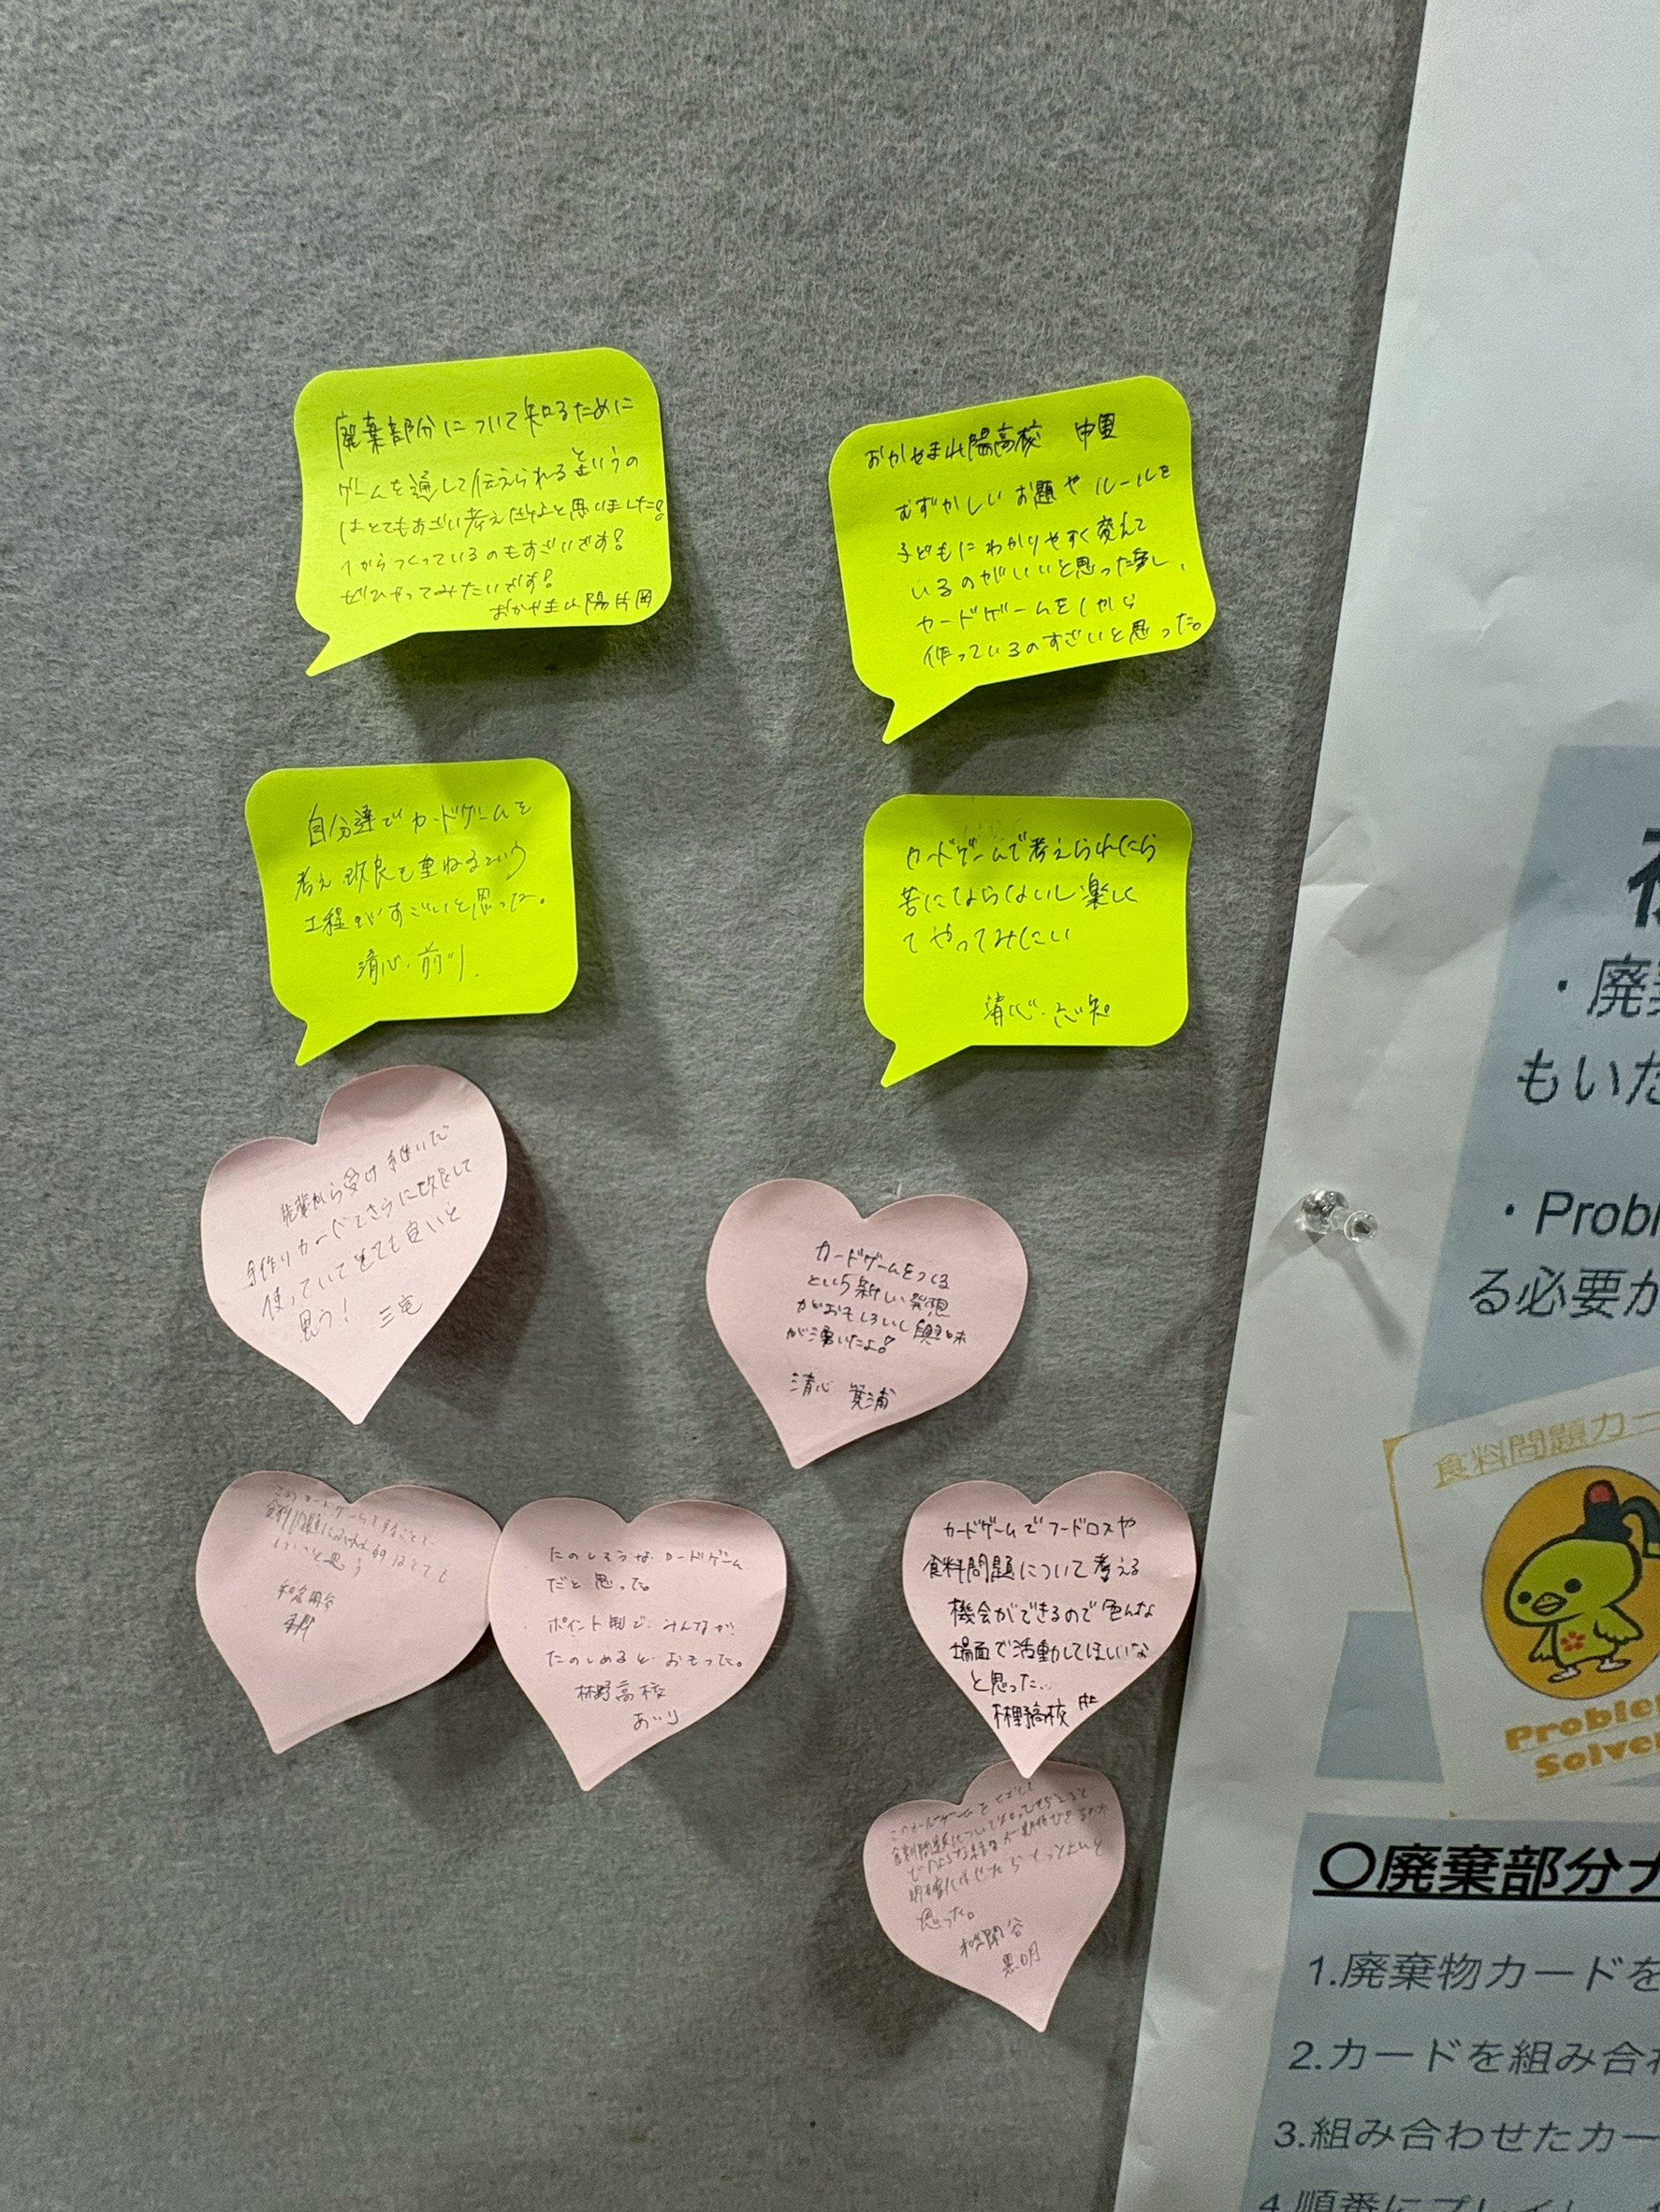 廃棄部分について知るために
ゲームを通して伝えられるというの
はとてもすごい考えだと思いました!
1からつくっているのもすごいです!
ぜひやってみたいです!
おかやま山陽 片岡
おかやま山陽高校
むずかしいお題やルールを
子どもにわかりやすく変えて
いるのがいいと思ったし、
カードゲームを1から
作っているのすごいと思った。
自分達でカードゲームを
考え改良も重ねるという
工程がすごいと思った。
清心
カードゲームで考えられたら
苦にならないし楽しく
てやってみたい
清心
先輩から受け継いだ
手作りカードでさらに改良して
使っていてとても良いと
思う! 三宅
カードゲームをつくる
という新しい発想
がおもしろいし興味
が湧いたよ!
清心 箕浦
このカードゲームをすることで
食料問題に
いいと思う
和気閑谷
たのしそうなカードゲーム
だと思った。
ポイント制で、みんなが
たのしめるとおもった。
林野高校
カードゲームでフードロスや
食料問題について考える
機会ができるので色んな
場面で活動してほしいな
と思った。
林野高校
このカードゲームを
食料問題について
思った。
和気閑谷
・廃
もいた
・Probl
る必要か
食料問題カー
Proble
Solve
〇廃棄部分ナ
1.廃棄物カードを
2.カードを組み合わ
3.組み合わせたカー
4.順番にプレイ